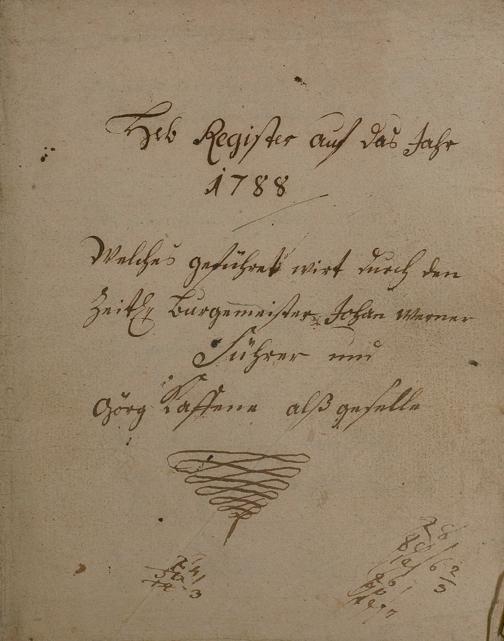 Heb Register auf das Jahr
1788
Welches geführet wirt durch den
Zeitl. Burgemeister Johan Werner
Führer und
Görg Kassene alß geselle